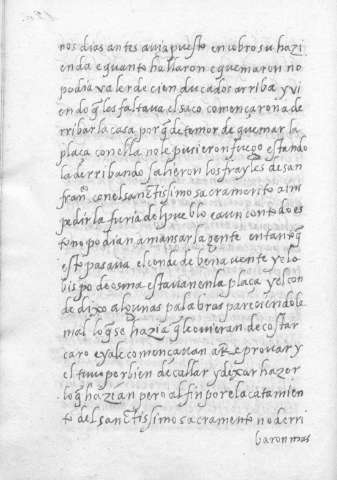 nos dias antes avia puesto en cobro su hazi
enda e quanto hallaron e quemaron no
podia valer de cien ducados arriba y vi
endo q̃ les faltava el saco començaron a de
rribar la casa porq̃ de temor de quemar la
plaça con ella no le pusieron fuego estando
la derribando salieron los frayles de san
fran^co con el sanctissimo sacramento a im
pedir la furia del pueblo e aun con todo es
to no podian amansar la gente entanto q̃
esto pasava el conde de benavente y el o
bispo de osma estavan en la plaça y el con
de dixo algunas palabras pareciendole
mal lo q̃ se hazia q̃ le ovieran de costar
caro e ya le començavan a Reprovar y
el tuvo por bien de callar y dexar hazer
lo q̃ hazian pero al fin por el acatamien
to del sanctissimo sacramento no derri
baron mas